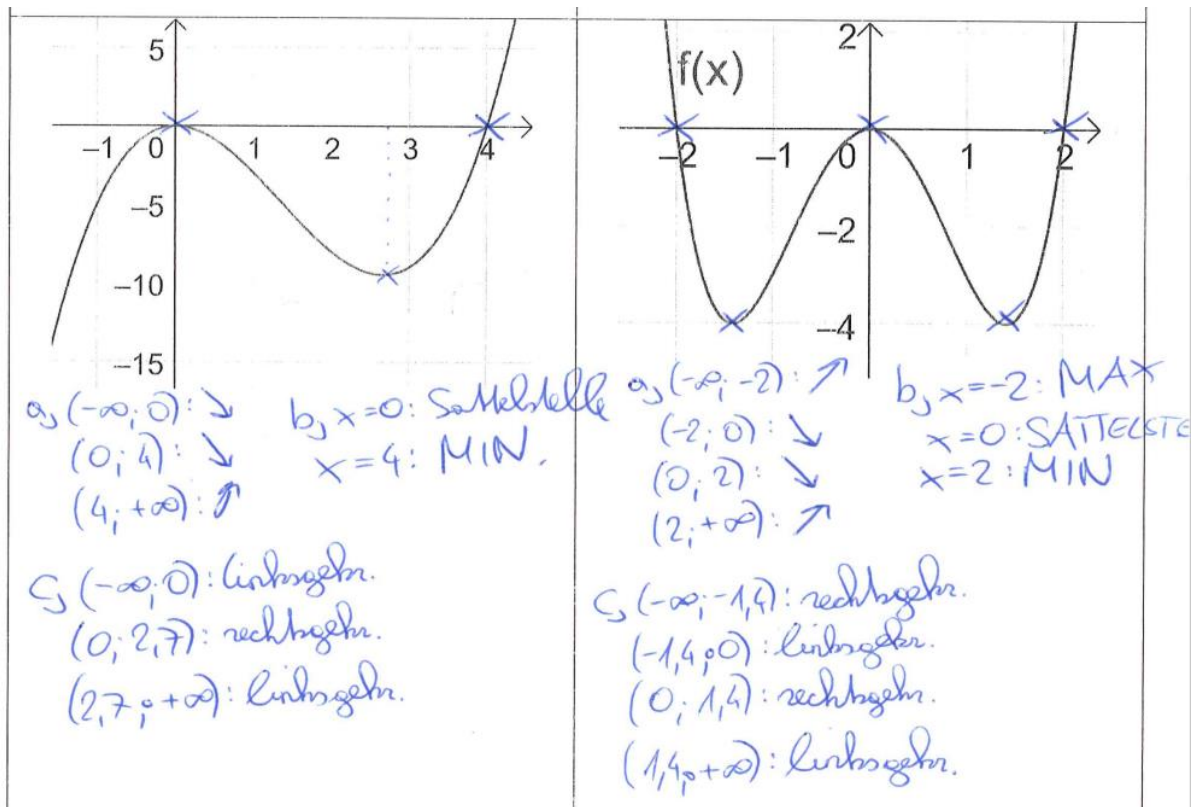 5
-1 0 1 2 3 4
-5
-10
-15
a, (-∞; 0): ↘
(0; 4): ↘
(4; +∞): ↗
b, x=0: Sattelstelle
x=4: MIN.
c, (-∞; 0): linksgekr.
(0; 2,7): rechtsgekr.
(2,7; +∞): linksgekr.
2
f(x)
-2 -1 0 1 2
-2
-4
a, (-∞; -2): ↗
(-2; 0): ↘
(0; 2): ↘
(2; +∞): ↗
b, x=-2: MAX
x=0: SATTELSTE
x=2: MIN
c, (-∞; -1,4): rechtsgekr.
(-1,4; 0): linksgekr.
(0; 1,4): rechtsgekr.
(1,4; +∞): linksgekr.